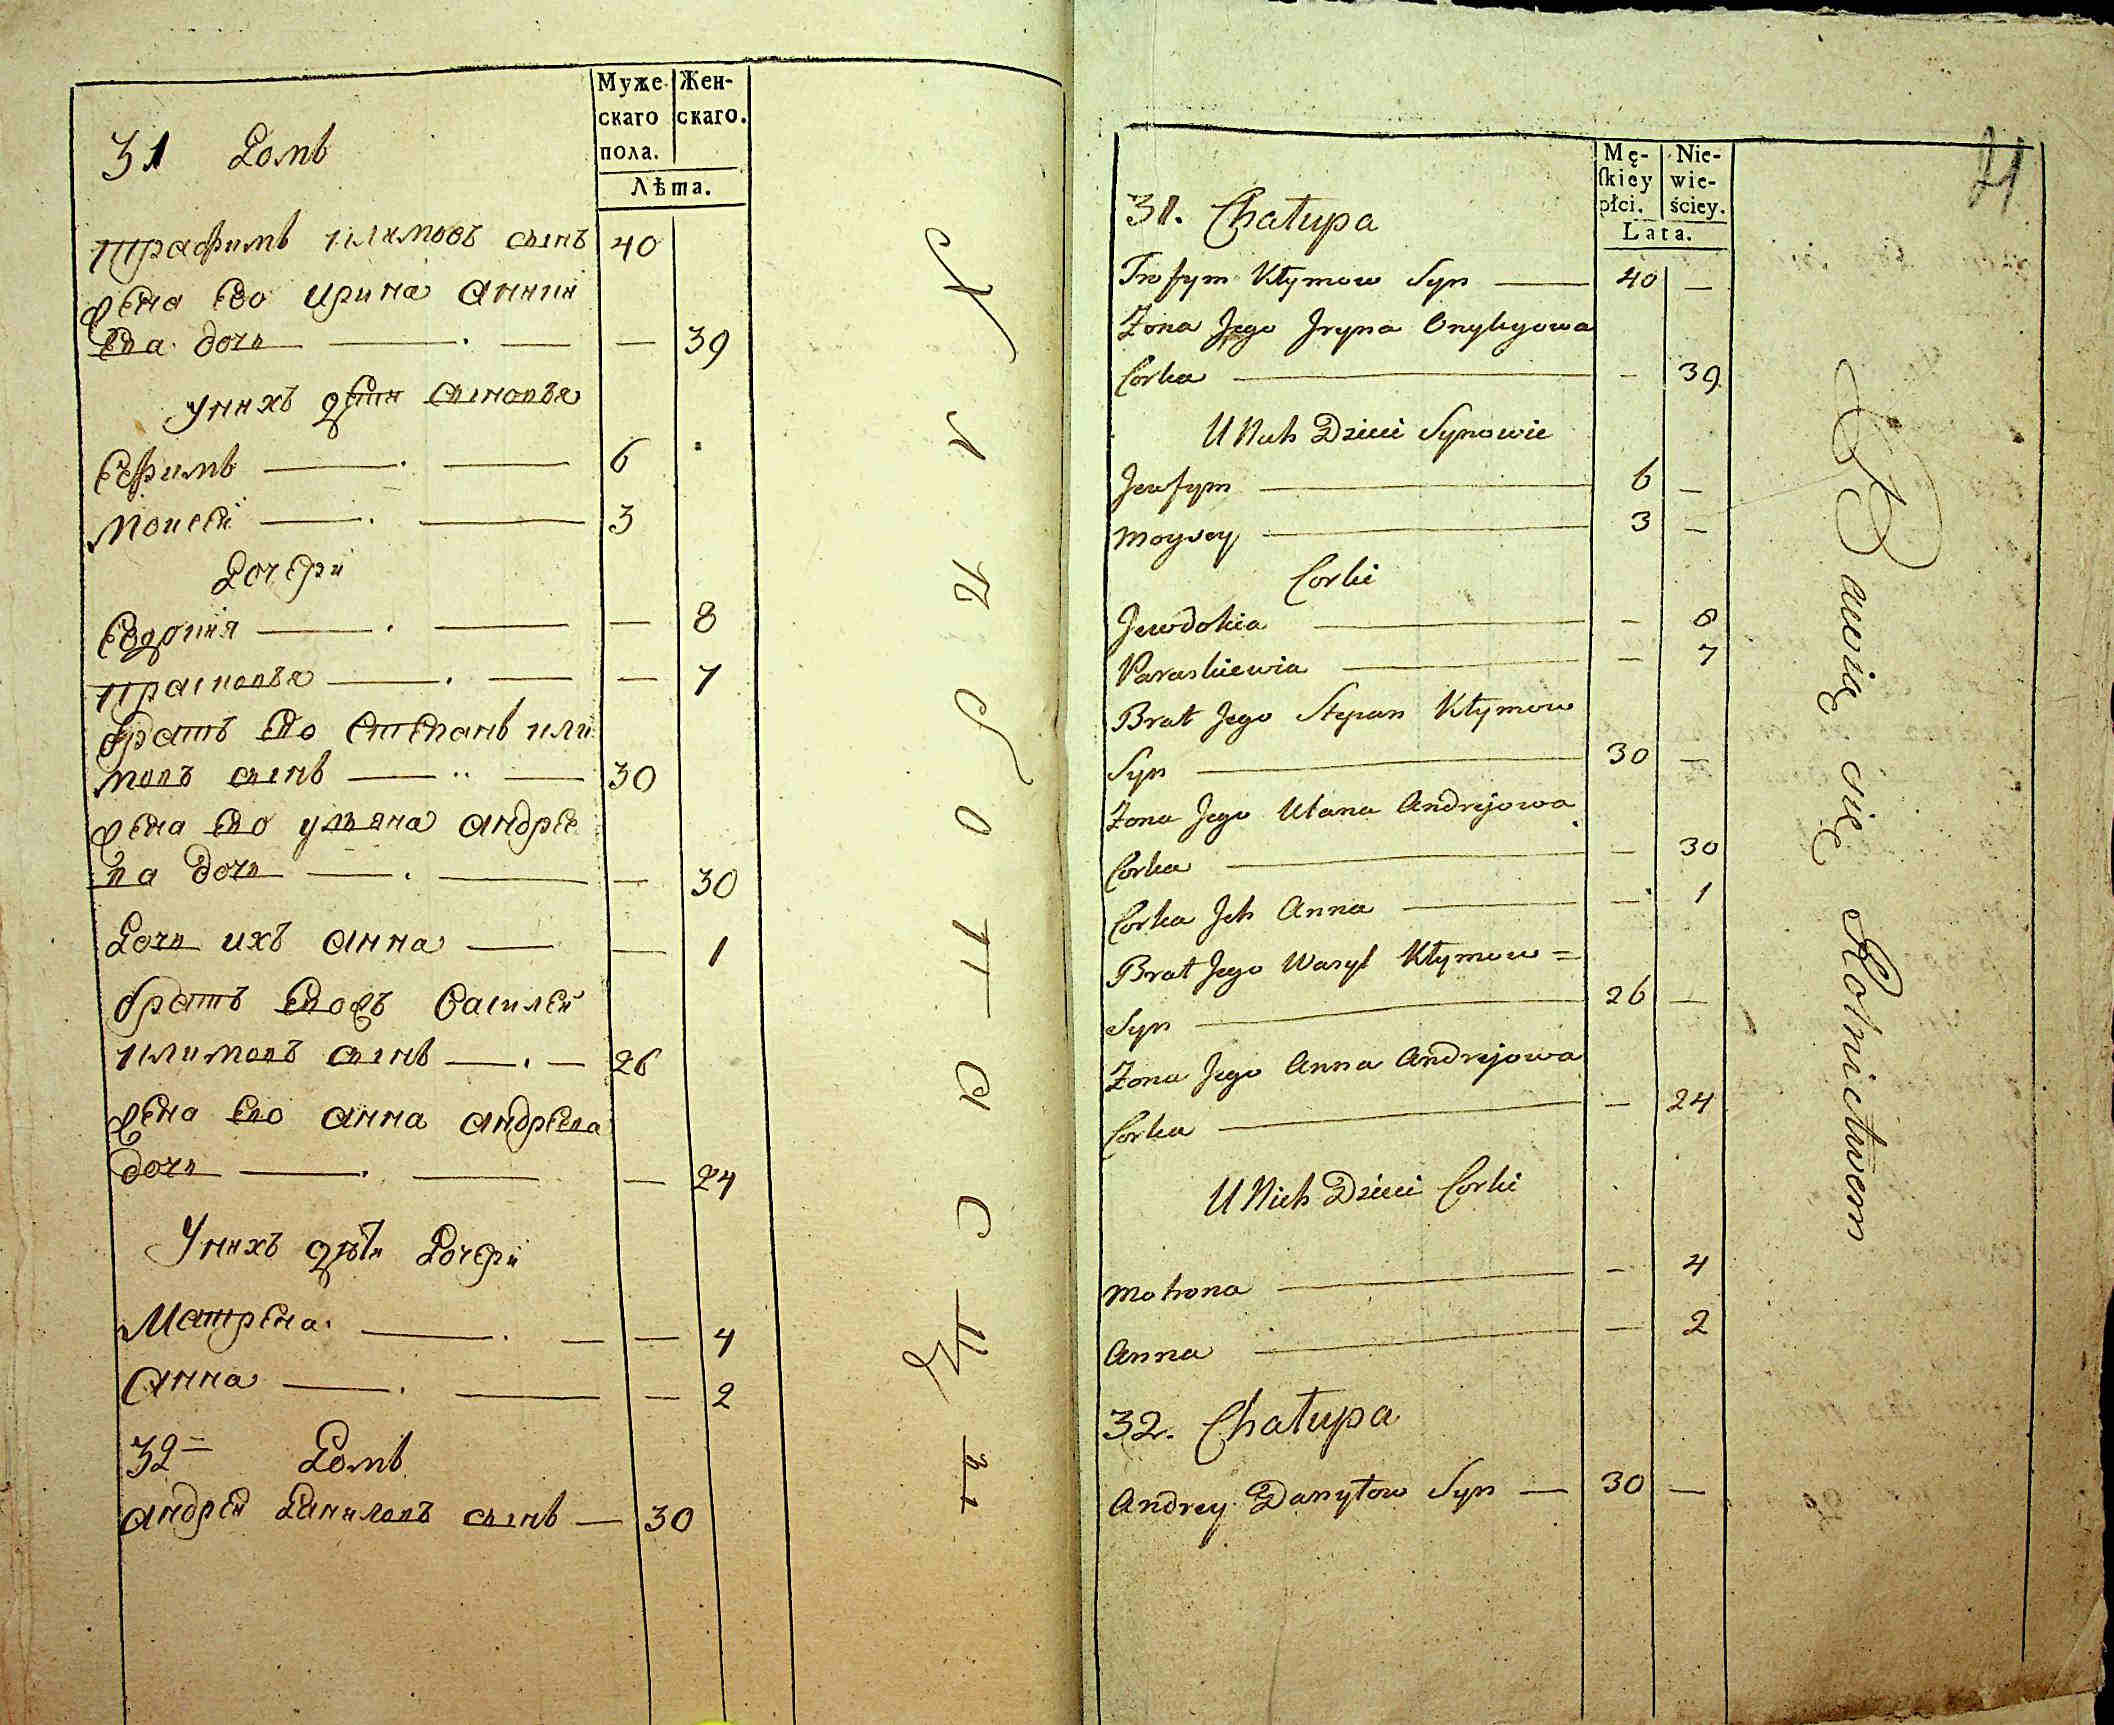 Муже- Жен-
скаго скаго.
пола.
Лѣта.
31 Домъ
Трафимъ Климовъ сынъ 40
жена Ево Ирина Аники
Ева дочь — 39
У нихъ дѣти сыновья
Ефимъ 6
Моисей 3
Дочери
Евдокия — 8
Прасковья — 7
братъ Ево Степанъ Кли
мовъ сынъ 30
жена Ево Ульяна Андрее
ва дочь — 30
Дочь ихъ Анна — 1
братъ Евожъ Василей
Климовъ сынъ 26
жена Ево Анна Андреева
дочь — 24
У нихъ дѣти Дочери
Матрена — 4
Анна — 2
32 Домъ
Андрей Даниловъ сынъ — 30
21
Mę- Nie-
skiey wie-
płci. ściey.
Lata.
31. Chałupa
Trofym Kłymow Syn — 40 —
Zona Jego Jryna Onykyowa
Corka — 39
U Nich Dzieci Synowie
Jewfym 6 —
Moysey 3 —
Corki
Jewdokia — 8
Paraskiewia — 7
Brat Jego Stepan Kłymow
Syn 30 —
Zona Jego Ulana Andrejowa
Corka — 30
Corka Jch Anna — 1
Brat Jego Wasyl Kłymow =
Syn 26 —
Zona Jego Anna Andrejowa
Corka — 24
U Nich Dzieci Corki
Motrona — 4
Anna — 2
32. Chałupa
Andrey Danyłow Syn — 30 —
Bawią się Rolnictwem